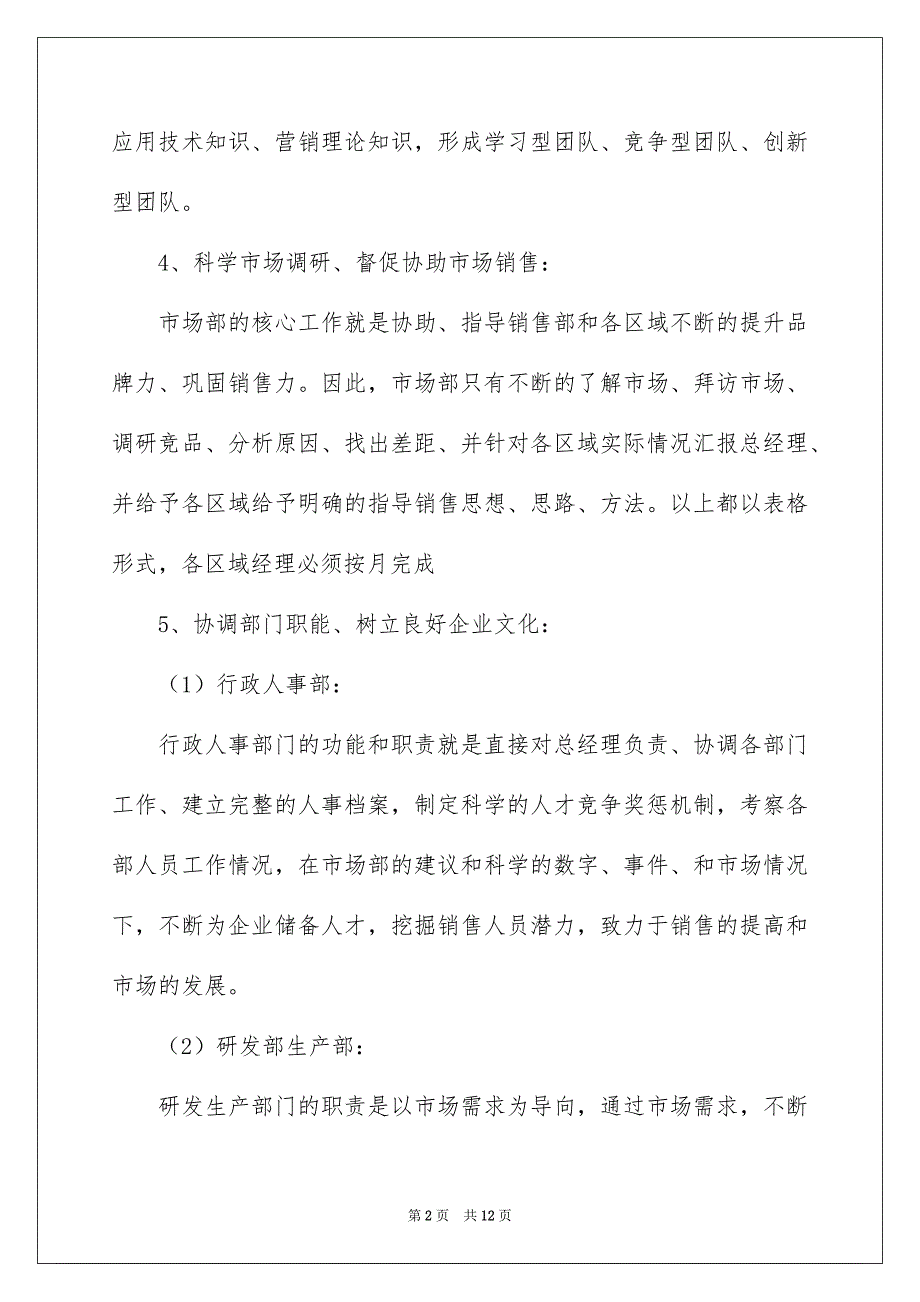 应用技术知识、营销理论知识，形成学习型团队、竞争型团队、创新
型团队。
4、科学市场调研、督促协助市场销售：
市场部的核心工作就是协助、指导销售部和各区域不断的提升品
牌力、巩固销售力。因此，市场部只有不断的了解市场、拜访市场、
调研竞品、分析原因、找出差距、并针对各区域实际情况汇报总经理、
并给予各区域给予明确的指导销售思想、思路、方法。以上都以表格
形式，各区域经理必须按月完成
5、协调部门职能、树立良好企业文化：
（1）行政人事部：
行政人事部门的功能和职责就是直接对总经理负责、协调各部门
工作、建立完整的人事档案，制定科学的人才竞争奖惩机制，考察各
部人员工作情况，在市场部的建议和科学的数字、事件、和市场情况
下，不断为企业储备人才，挖掘销售人员潜力，致力于销售的提高和
市场的发展。
（2）研发部生产部：
研发生产部门的职责是以市场需求为导向，通过市场需求，不断
第 2 页 共 12 页